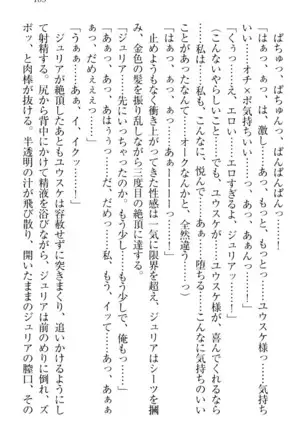 ぱちゅっ、ぱちゅっ、ぱんぱんぱんっ！
「はぁっ、ぁっ、は、激し……あっ、もっと、もっと……ユウスケ様っ……気持ち
いい……オチ×ポ気持ちいいぃ……」
「くうっ……え、エロい……エロすぎるよ、ジュリアッ……！」
（こんないやらしいこと……でも、ユウスケ様が、喜んでくれるなら
……私は、私も、こんなに、悦んで……あぁ……堕ちる……こんなに気持ちのいい
ことがあったなんて……オークなんかと、全然違う……っ）
「はぁっ、ぁっ、ぁっ……あぁーーーーっ」
　止めようもなく衝き上がってきた性感に一気に限界を超え、ジュリアはシーツを摑
み、金色の髪を振り乱しながら三度目の絶頂に達する。
「ジュリア……先にいっちゃったのか、もう少し……もう少しで、俺もっ……」
「あっ、あっ、あはぁぅっ……だ、だめ……っ……私、もう、イッて……あっ、あ
ぁっ、だめぇぇっ……」
「ああっ……あぁ、イ、イクっ……！」
　ジュリアが絶頂したあともユウスケは容赦せずに突きまくり、追いかけるようにし
て射精する。尻から背中にかけて精液を浴びながら、ジュリアは前のめりに倒れ、ズ
ポッと肉棒が抜ける。半透明の汁が飛び散り、開いたままのジュリアの膣口、その